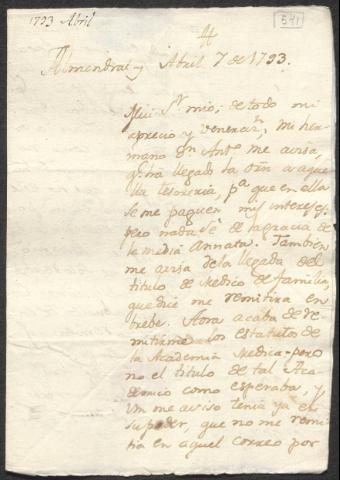 1793 Abril
541
Almendral y Abril 7 de 1793.
Mui Sr mio, de todo mi
aprecio y venerazn, mi her-
mano Dn Anto me avisa,
qe ha llegado la orn a aque-
lla tesoreria, pa que en ella
se me paguen mis intereses,
pero nada de la gracia de
la media Annata. Tambien
me avisa de la llegada del
titulo de Medico de familia,
que dice me remitira en
brebe. Aora acaba de re-
mitirme los estatutos de
la Academia Medica, pero
no el titulo de tal Aca-
demico como esperaba, y
Vm me aviso tenia ya en
su poder, que no me remi-
tia en aquel correo por